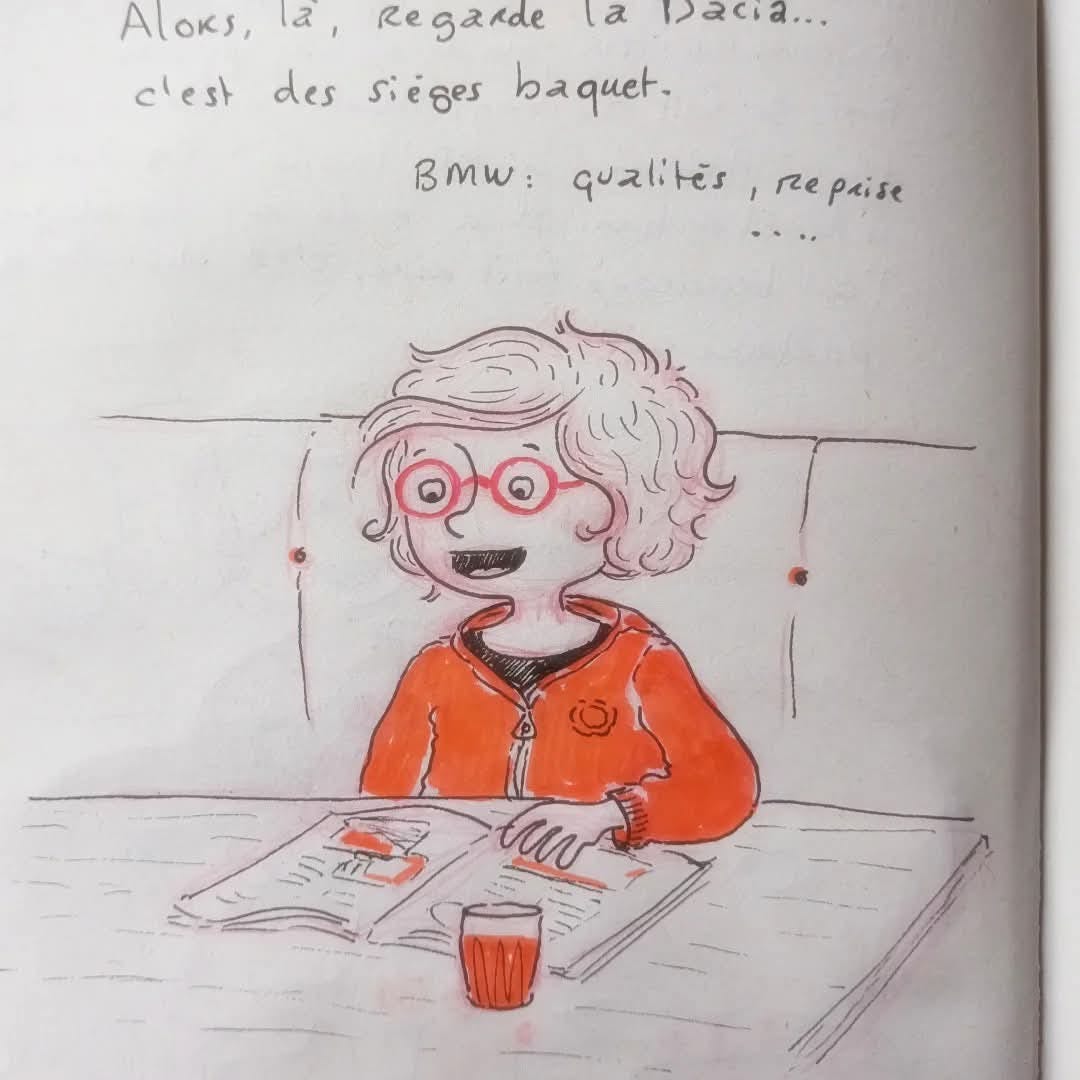 Alors, là, regarde la Dacia...
c'est des sièges baquet.
BMW: qualités, Reprise
....